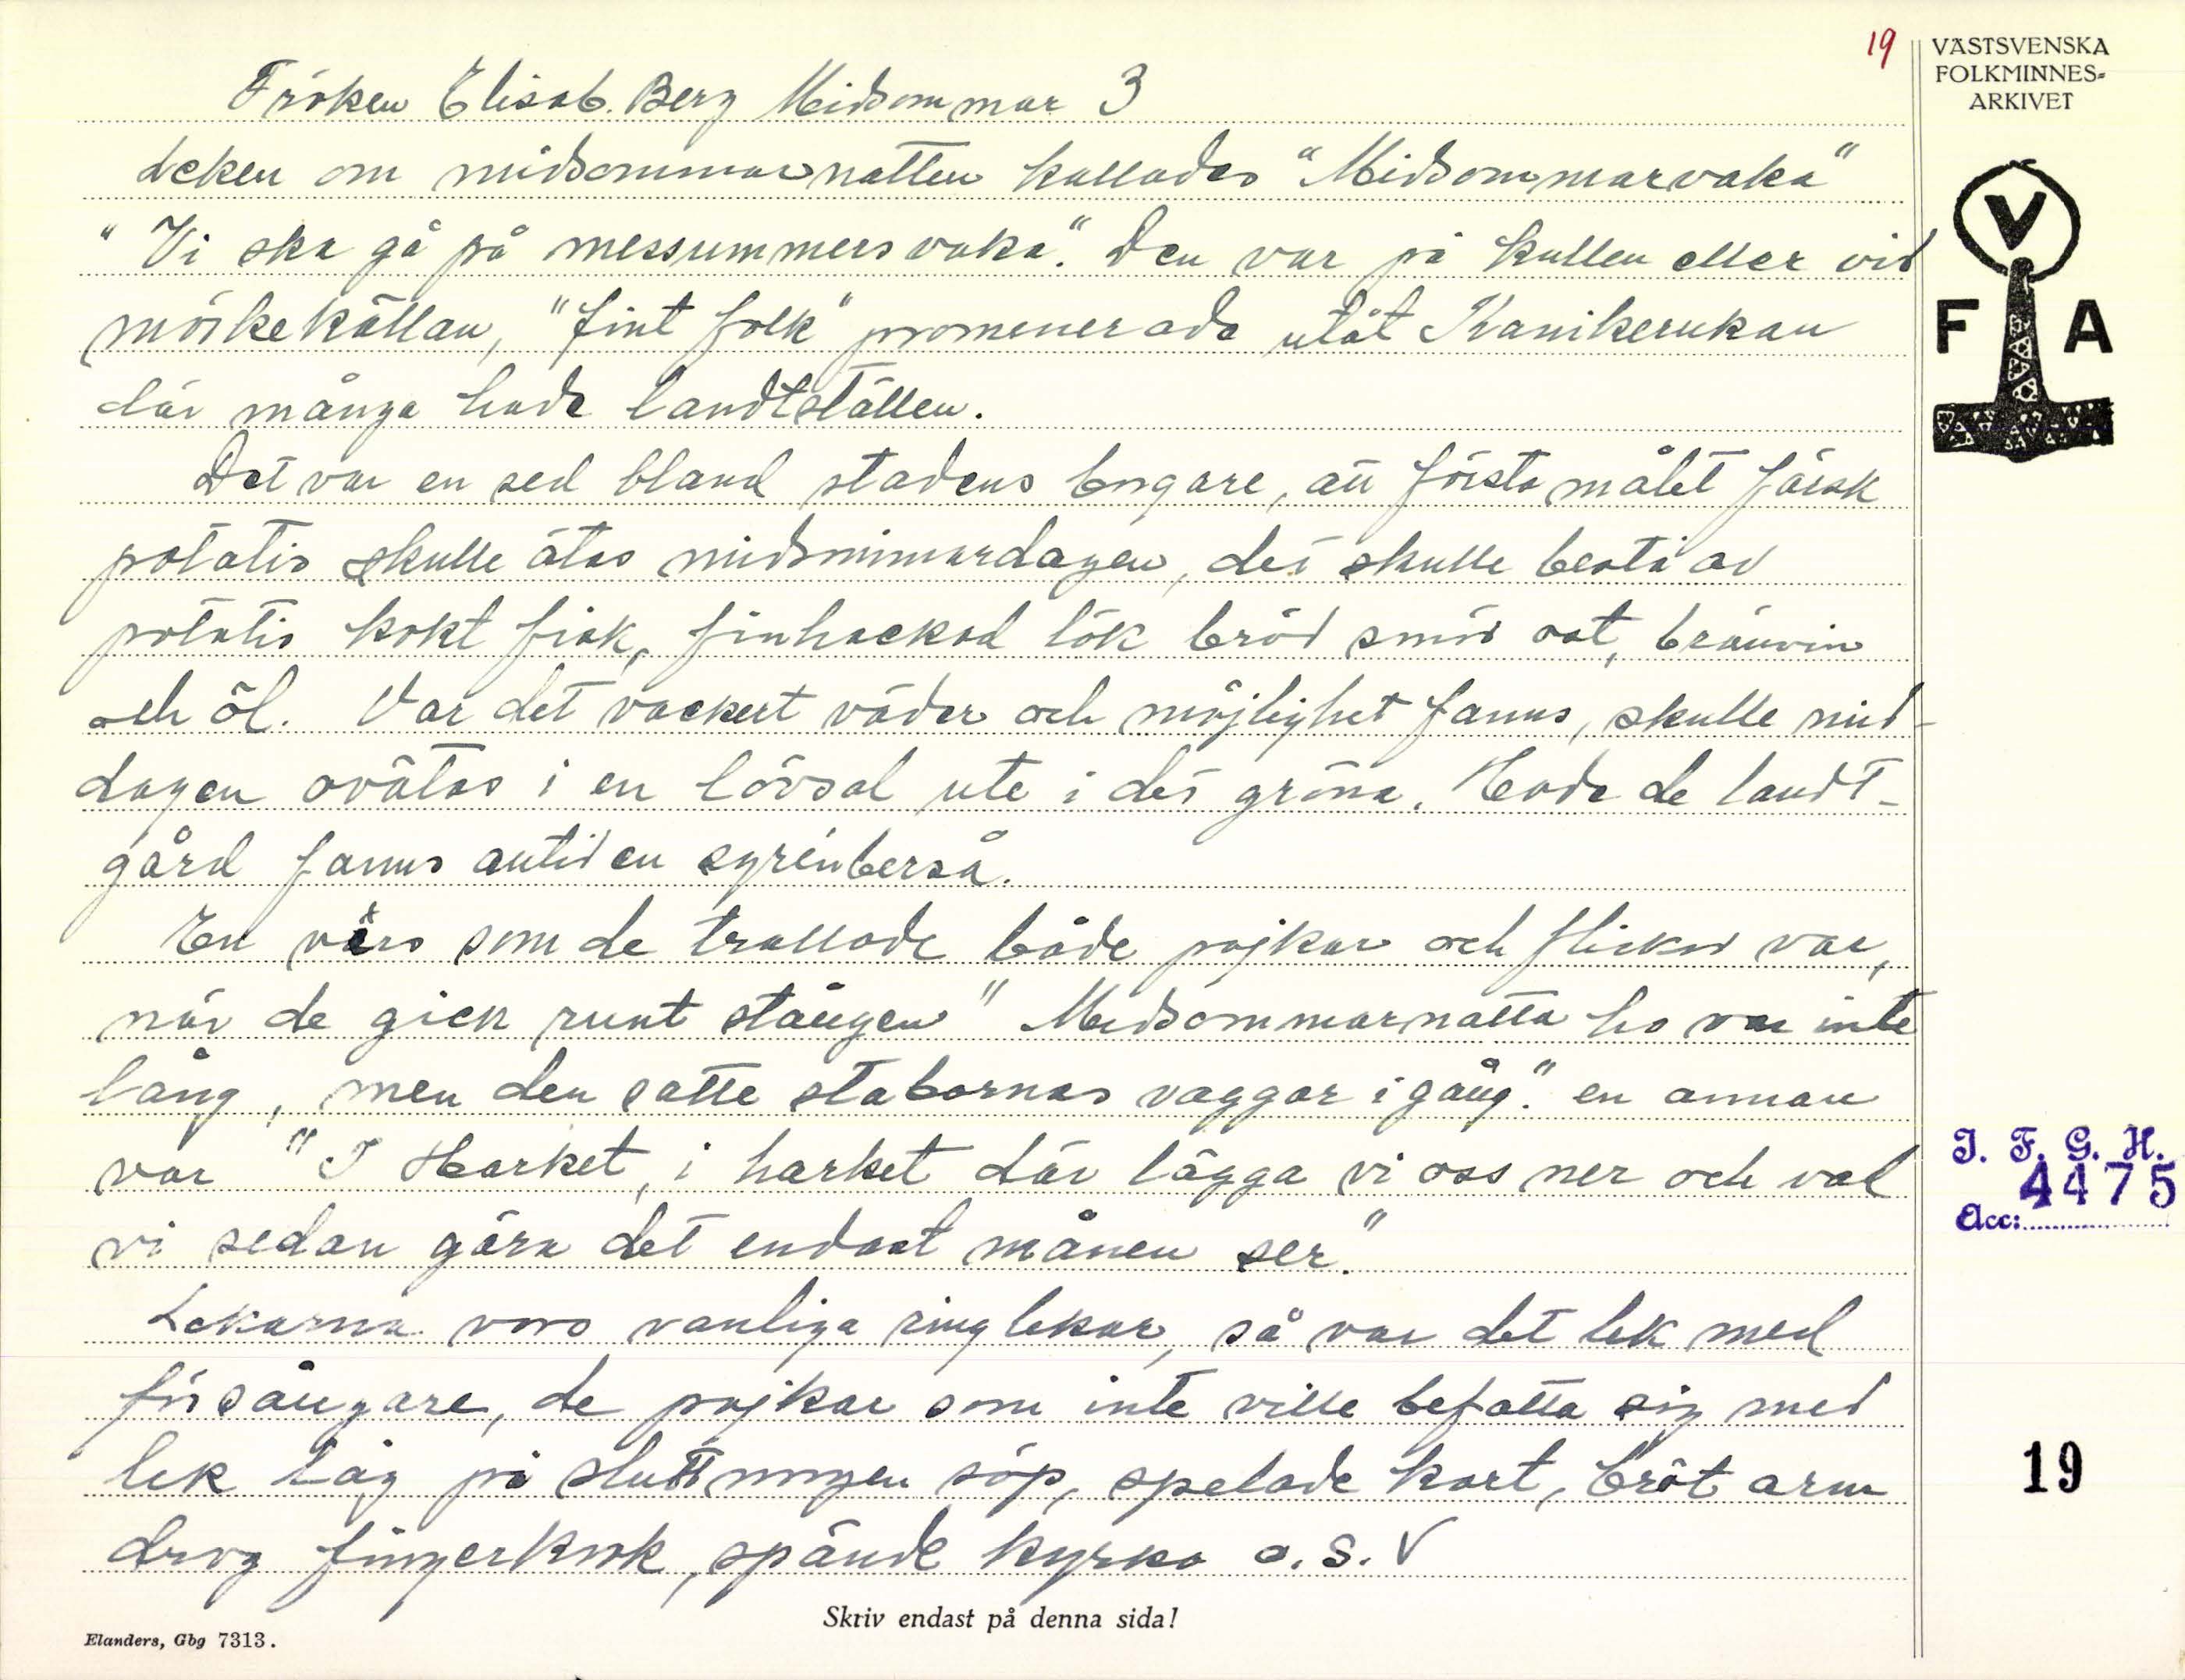 19
VÄSTSVENSKA
FOLKMINNES-
ARKIVET
Fröken Elisab. Berg Midsommar 3
Leken om midsommarnatten kallades "Midsommarvaka"
"Vi ska gå på messummersvaka". Den var på kullen eller vid
mörkekällan, "fint folk" promenerade utåt Kanikerukan
där många hade landtställen.
Det var en sed bland stadens borgare, att första målet färsk
potatis skulle ätas midsommardagen, det skulle bestå av
potatis kokt fisk, finhackad lök bröd smör ost, brännvin
och öl. Var det vackert väder och möjlighet fanns, skulle mid-
dagen avätas i en lövsal ute i det gröna. Hade de landt-
gård fanns alltid en syrénberså.
En värs som de trallade både pojkar och flickor var,
när de gick runt stången "Midsommarnatta ho var inte
lång, men den satte stabornas vaggor i gång". en annan
var "I Harket, i harket där lägga vi oss ner och vad
vi sedan göra det endast månen ser."
Lekarna voro vanliga ringlekar, så var det lek med
försångare, de pojkar som inte ville befatta sig med
lek låg på sluttningen söp, spelade kort, bröt arm
drog fingerkrok, spände kyrka o.s.v
V
F A
I. F. G. H.
4475
Acc:
19
Skriv endast på denna sida!
Elanders, Gbg 7313.